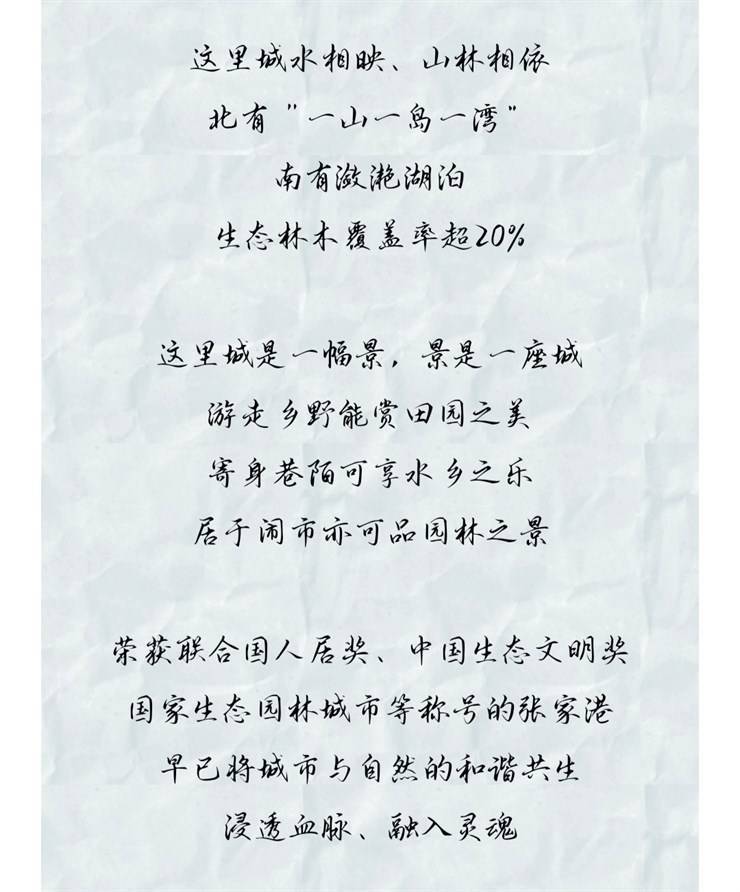 这里城水相映、山林相依
北有"一山一岛一湾"
南有潋滟湖泊
生态林木覆盖率超20%
这里城是一幅景，景是一座城
游走乡野能赏田园之美
寄身巷陌可享水乡之乐
居于闹市亦可品园林之景
荣获联合国人居奖、中国生态文明奖
国家生态园林城市等称号的张家港
早已将城市与自然的和谐共生
浸透血脉、融入灵魂